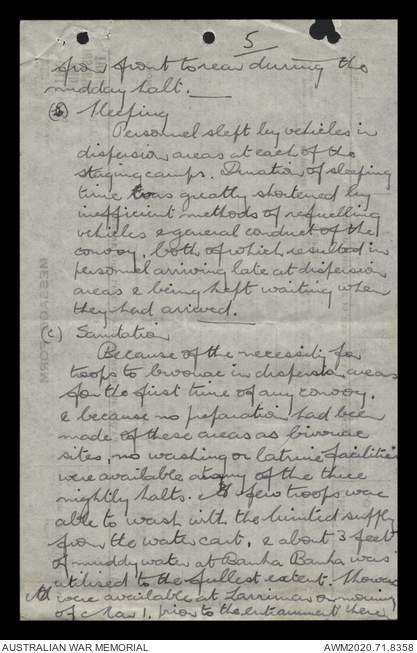 5
from front to rear during the
midday halt.
(b) Sleeping
Personnel slept by vehicles in
dispersion areas at each of the
staging camps. Duration of sleeping
time was greatly shortened by
inefficient methods of refuelling
vehicles & general conduct of the
convoy, both of which resulted in
personnel arriving late at dispersion
areas & being kept waiting when
they had arrived.
(c) Sanitation
Because of the necessity for
troops to bivouac in dispersion areas
for the first time of any convoy,
& because no preparation had been
made of these areas as bivouac
sites, no washing or latrine facilities
were available at any of the three
nightly halts. A few troops were
able to wash with the limited supply
from the water cart, & about 3 feet
of muddy water at Banka Banka was
utilised to the fullest extent. Showers
were available at Larrimah on morning
of Mar 1, prior to the entrainment there
MESSAGE FORM
AUSTRALIAN WAR MEMORIAL
AWM2020.71.8358